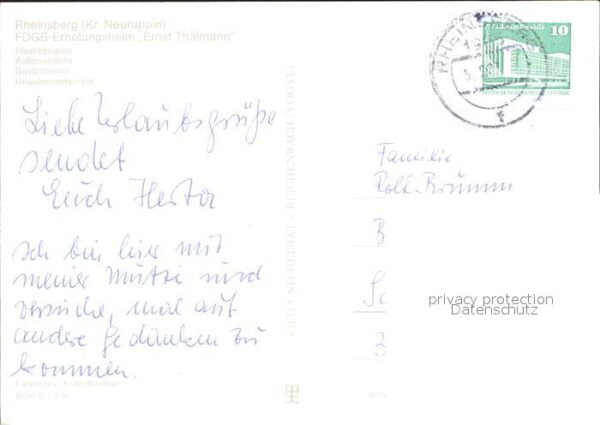 Rheinsberg (Kr. Neuruppin)
FDGB-Erholungsheim „Ernst Thälmann"
Plastikgruppe
Außenansicht
Gästezimmer
Urlauberrestaurant
Liebe Urlaubsgrüße
sendet
Euch Herta
Ich bin hier mit
meiner Mutti und
versuche, mal auf
andere Gedanken zu
kommen.
BILD UND HEIMAT · REICHENBACH (VOGTL)
RHEINSBERG
10
Familie
Rolf Brumm
B
Sc
3
privacy protection
Datenschutz